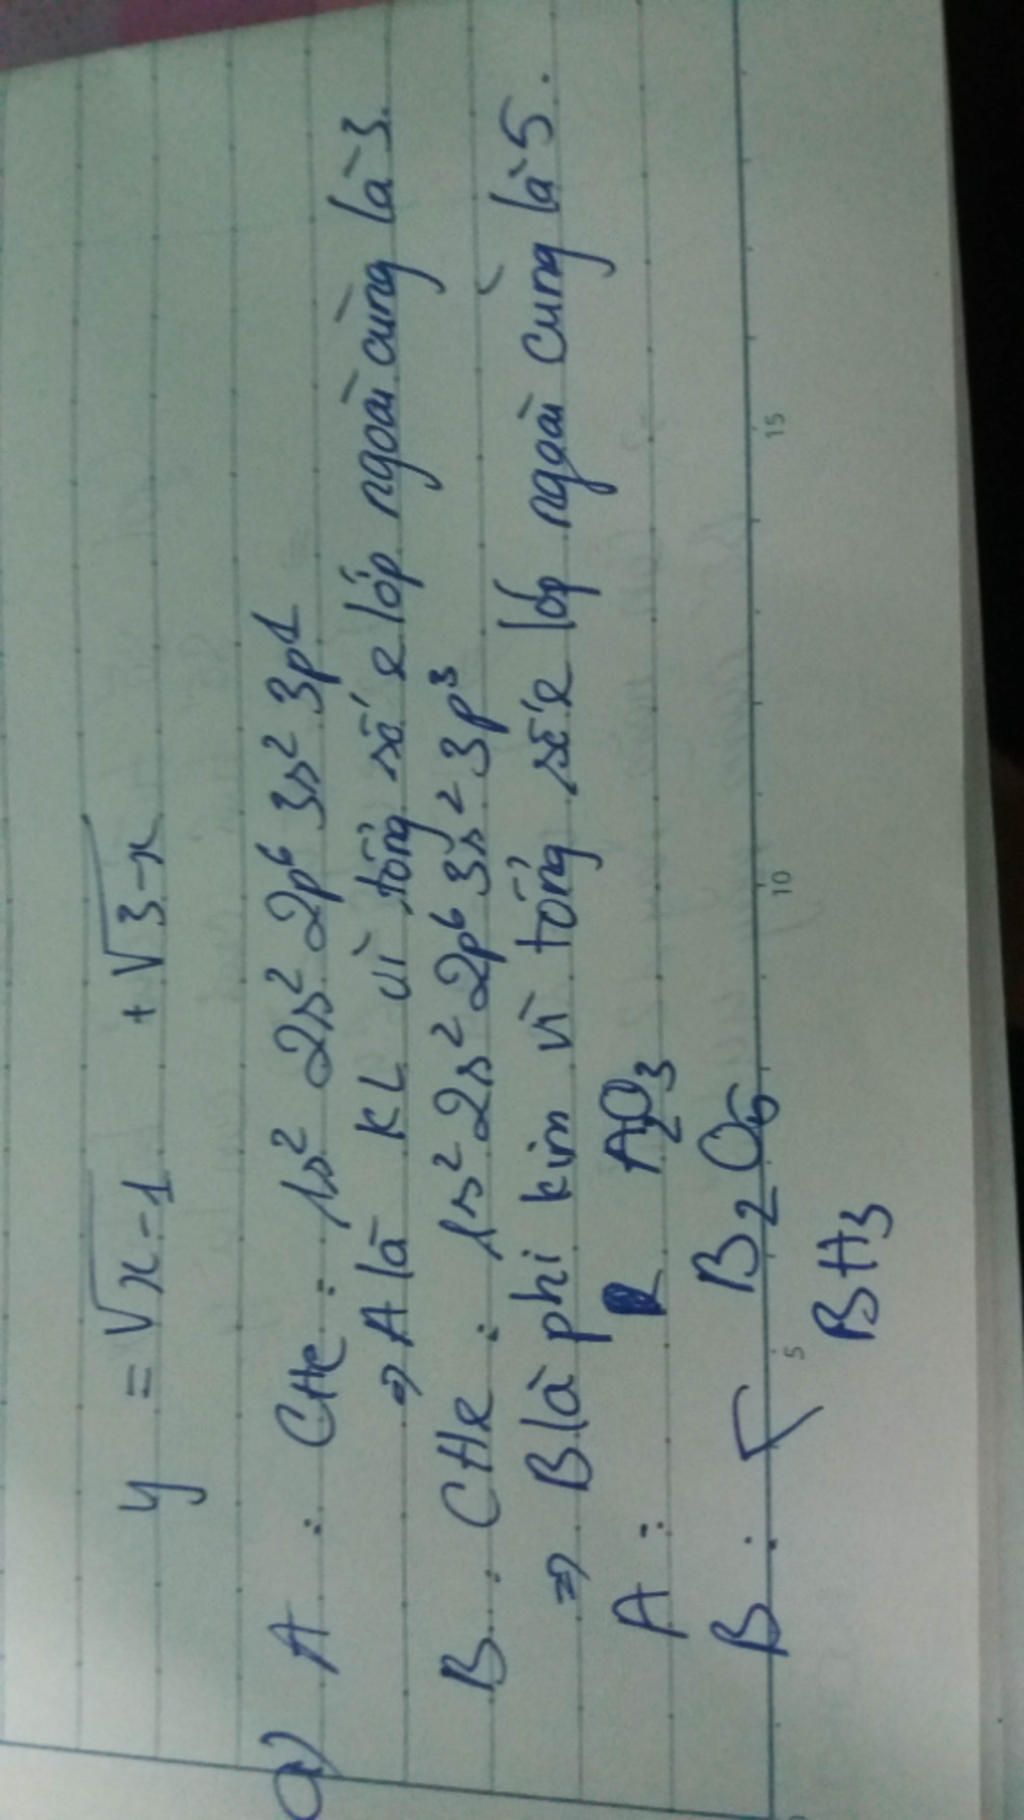 y = √x-1 + √3-x
a) A : CHe : 1s² 2s² 2p⁶ 3s² 3p¹
⇒ A là KL vì tổng số e lớp ngoài cùng là 3.
B : CHe : 1s² 2s² 2p⁶ 3s² 3p³
⇒ B là phi kim vì tổng số e lớp ngoài cùng là 5.
A : A₂O₃
B : B₂O₅
BH₃
5 10 15